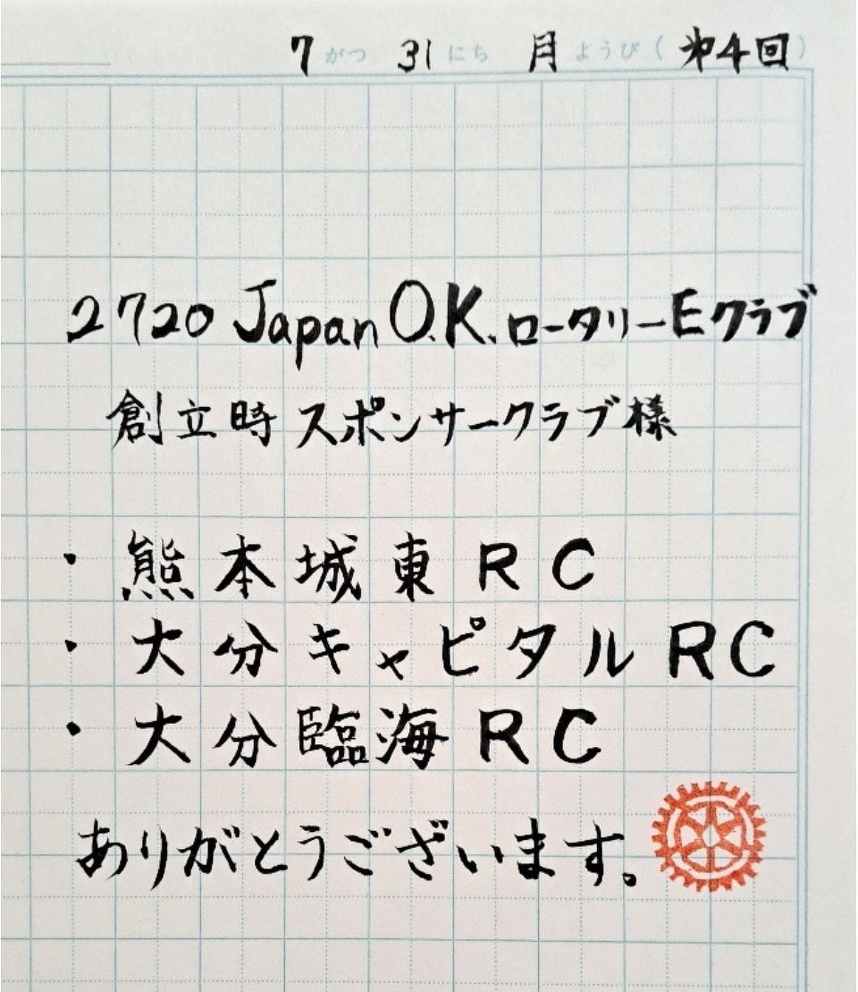 7がつ 31にち 月ようび(第4回)
2720 Japan O.K. ロータリーEクラブ
創立時 スポンサークラブ様
・熊本城東RC
・大分キャピタルRC
・大分臨海RC
ありがとうございます。